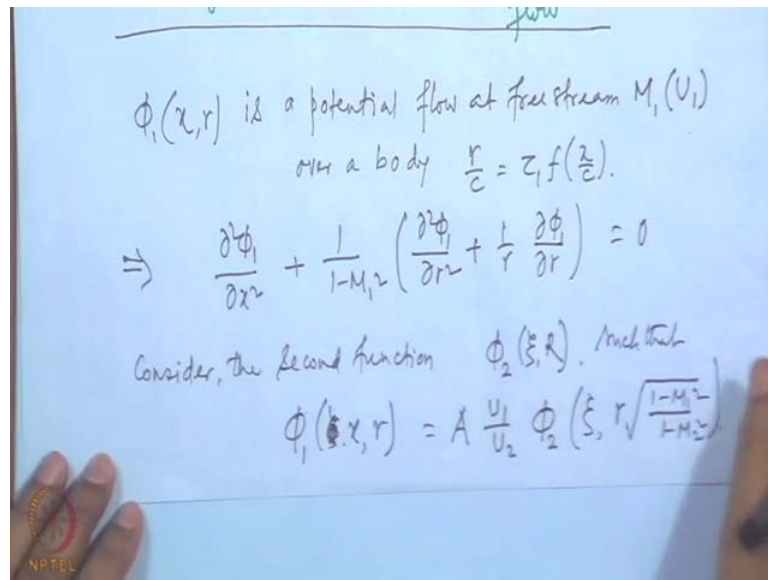 flow
ϕ₁(x,r) is a potential flow at free stream M₁(U₁)
over a body r/c = τ₁ f(x/c).
⇒ ∂²ϕ₁/∂x² + 1/(1-M₁²) (∂²ϕ₁/∂r² + 1/r ∂ϕ₁/∂r) = 0
Consider, the second function ϕ₂(ξ,R). such that
ϕ₁(x,r) = A U₁/U₂ ϕ₂(ξ, r√((1-M₁²)/(1-M₂²))
NPTEL